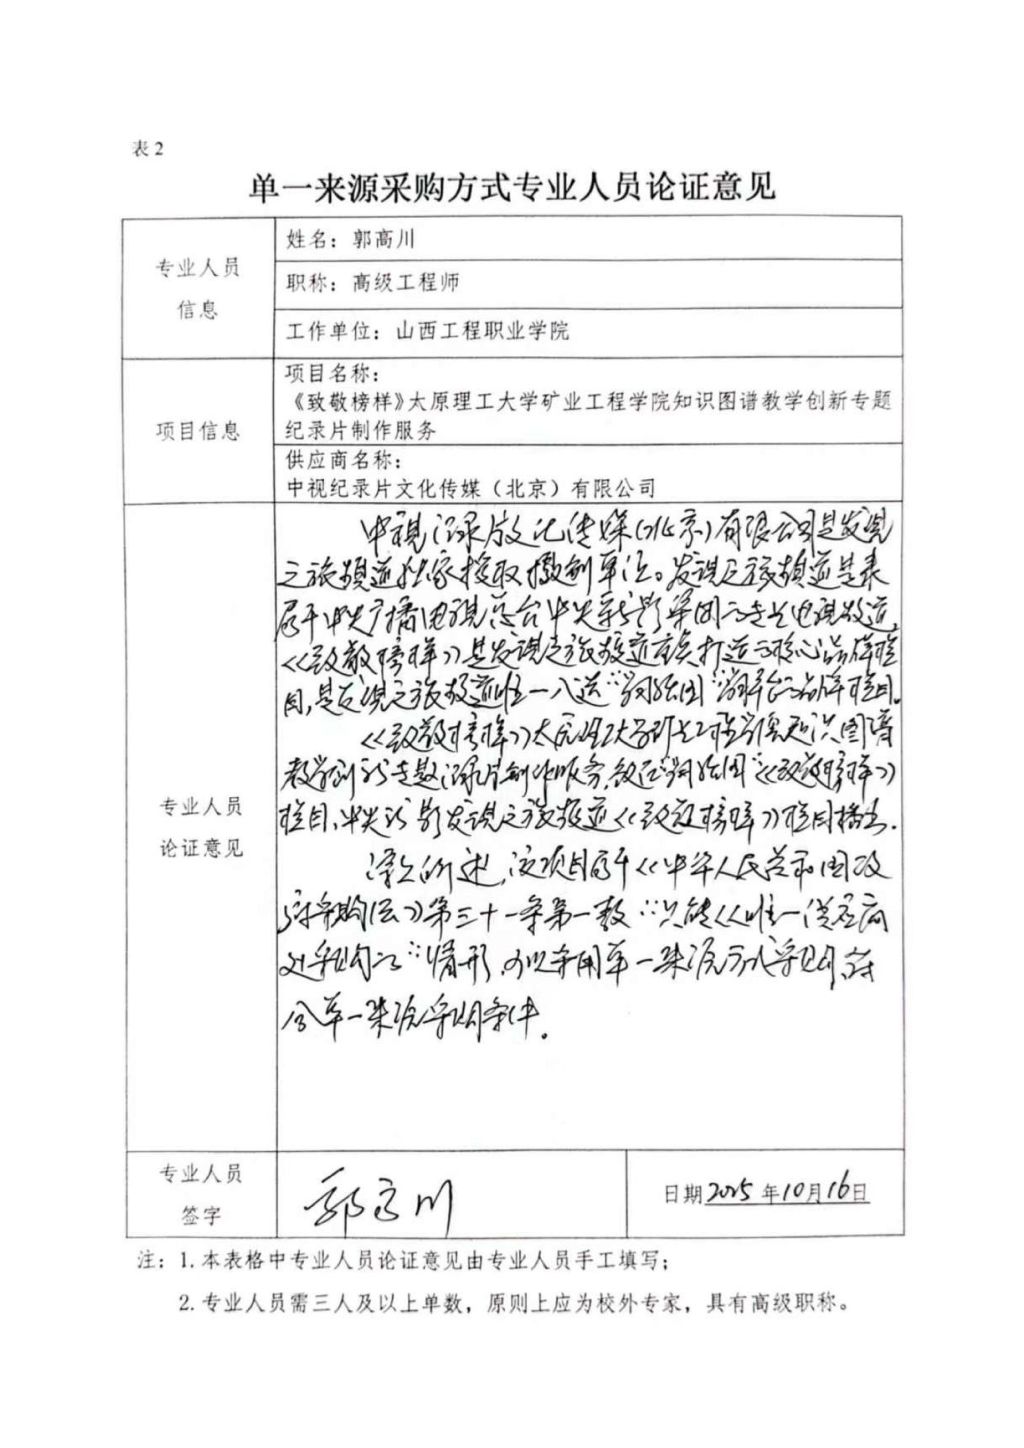 表2
单一来源采购方式专业人员论证意见
专业人员
信息
姓名：郭高川
职称：高级工程师
工作单位：山西工程职业学院
项目信息
项目名称：
《致敬榜样》太原理工大学矿业工程学院知识图谱教学创新专题
纪录片制作服务
供应商名称：
中视纪录片文化传媒（北京）有限公司
专业人员
论证意见
中视记录片文化传媒(北京)有限公司是发现
之旅频道独家授权摄制单位。发现之旅频道是隶
属于中央广播电视总台中央新影集团的专业电视频道,
《致敬榜样》是发现之旅频道重点打造的核心品牌栏
目,是发现之旅频道唯一入选
品牌栏目。
《致敬榜样》太原理工大学矿业工程学院知识图谱
教学创新专题记录片制作服务,
《致敬榜样》
栏目,中央新影发现之旅频道《致敬榜样》栏目播出.
综上所述,该项目属于《中华人民共和国政
府采购法》第三十一条第一款"只能从唯一供应商
处采购的"情形,可以采用单一来源方式采购,符
合单一来源采购条件。
专业人员
签字
郭高川
日期2025年10月16日
注：1.本表格中专业人员论证意见由专业人员手工填写；
2.专业人员需三人及以上单数，原则上应为校外专家，具有高级职称。